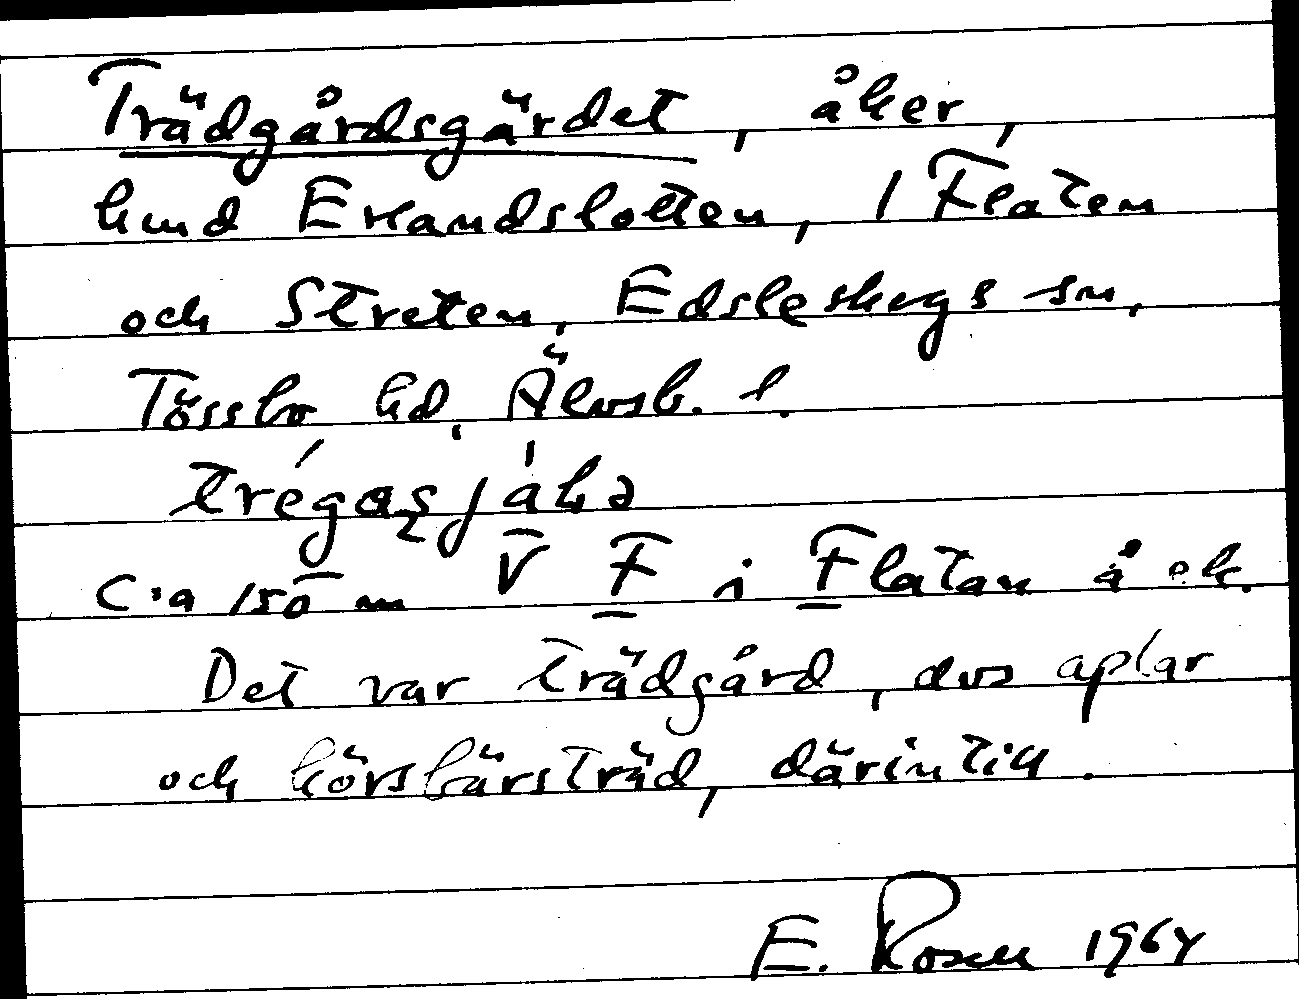 Trädgårdsgärdet, åker,
hmd Erlandslotten, 1 Flaten
och Streten, Edsleskogs sn,
Tössbo hd, Älvsb. l.
trégaʂjáḱə
C:a 150 m V F i Flatan å ek.
Det var trädgård, dvs aplar
och körsbärsträd, därintill.
E. Rosen 1964